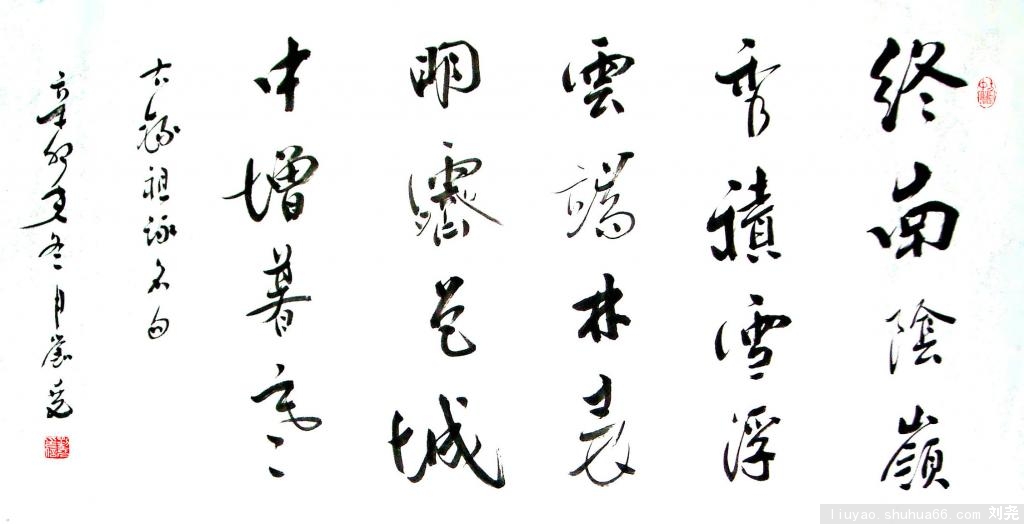 終南陰嶺
秀積雪浮
雲端林表
明霽色城
中增暮寒
右錄祖詠名句
辛卯年冬月劉堯
liuyao.shuhua66.com 刘尧